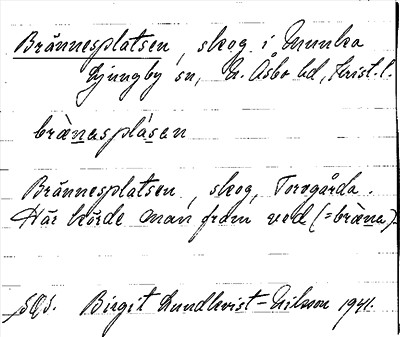 Brännesplatsen, skog i Munka
Ljungby sn, N. Åsbo hd, Krist. l.
brὰnasplásan
Brännesplatsen, skog, Torsgårda.
Här körde man fram ved (=brὰna).
SOS. Birgit Lundkvist-Nilsson 1941.